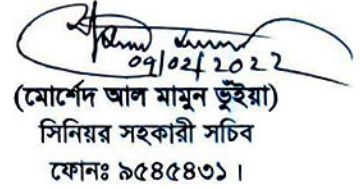 09/02/2022
(মোর্শেদ আল মামুন ভূঁইয়া)
সিনিয়র সহকারী সচিব
ফোনঃ ৯৫৪৫৪৩১।